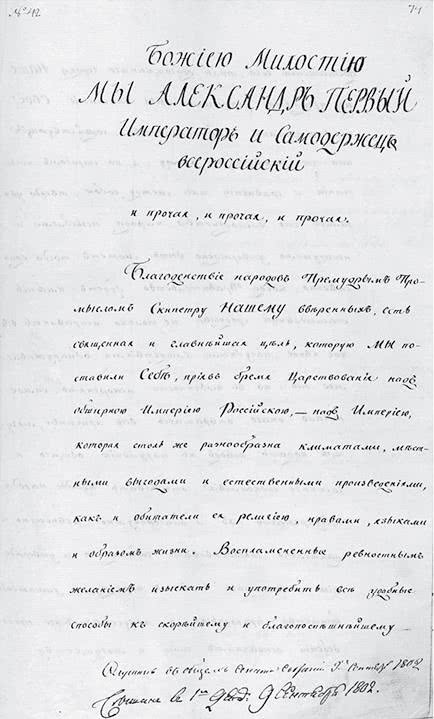 № 42
71
Божіею Милостію
МЫ АЛЕКСАНДРЪ ПЕРВЫЙ
Императоръ и Самодержецъ
всероссійскій
и прочая, и прочая, и прочая.
Благоденствіе народовъ Премудрымъ Про-
мысломъ Скипетру Нашему ввѣренныхъ, есть
священная и главнѣйшая цѣль, которую МЫ по-
ставили Себѣ, пріявъ бремя Царствованія надъ
обширною Имперіею Россійскою, — надъ Имперіею,
которая столь же разнообразна климатами, мѣст-
ными выгодами и естественными произведеніями,
какъ и обитатели ея религіею, нравами, языками
и образомъ жизни. Воспламененные ревностнымъ
желаніемъ изыскать и употребить всѣ удобные
способы къ скорѣйшему и благопоспѣшнѣйшему —
въ общемъ Сената Собраніи 9го Сентябр 1802
въ 1мъ 9 Сентября 1802.